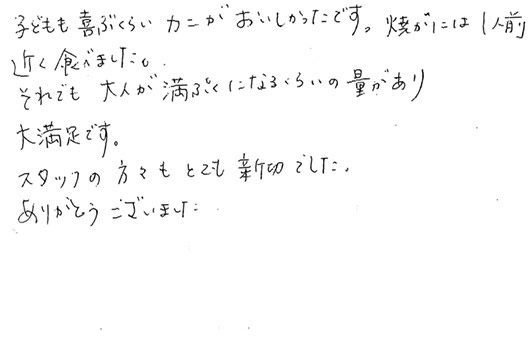 子どもも喜ぶくらいカニがおいしかったです。焼がには1人前
近く食べました。
それでも大人が満ぷくになるくらいの量があり
大満足です。
スタッフの方々もとても親切でした。
ありがとうございました